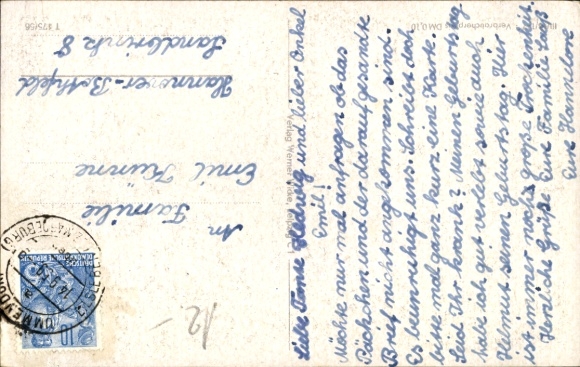 Liebe Tante Hedwig und lieber Onkel
Emil!
Möchte nur mal anfragen ob das
Päckchen und der darauf gesandte
Brief nicht angekommen sind.
Es beunruhigt uns. Schreibt doch
bitte mal ganz kurz eine Karte.
Seid Ihr krank? Meinen Geburtstag
habe ich gut verlebt sowie auch
Helmut seinen Geburtstag. Hier
ist immer noch große Trockenheit.
Herzliche Grüße Eure Familie
Eure Hannelore
An
Familie
Emil Künne
Hannover-Bothfeld
8
T 475/56
Verbraucherpreis DM 0,10
Verlag Werner
DEUTSCHE
DEMOKRATISCHE REPUBLIK
10
12-